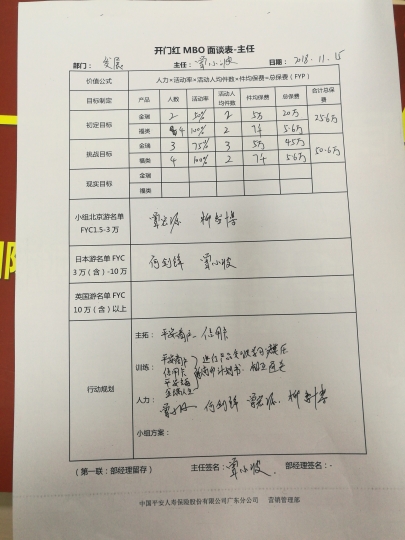 开门红 MBO 面谈表-主任
部门： 发展 主任： 覃小波 日期： 2018.11.15
价值公式 人力×活动率×活动人均件数×件均保费=总保费（FYP）
目标制定 产品 人数 活动率 活动人均件数 件均保费 总保费 合计总保费
初定目标 金瑞 2 50% 2 5万 20万 25.6万
福类 4 100% 2 7千 5.6万
挑战目标 金瑞 3 75% 3 5万 45万 50.6万
福类 4 100% 2 7千 5.6万
现实目标 金瑞
福类
小组北京游名单
FYC1.5-3 万
日本游名单 FYC
3 万（含）-10万
何剑锋 覃小波
英国游名单 FYC
10 万（含）以上
行动规划
主拓： 信用卡
训练：
信用卡
人力：
何剑锋
小组方案：
（第一联：部经理留存） 主任签名： 覃小波 部经理签名：
中国平安人寿保险股份有限公司广东分公司 营销管理部